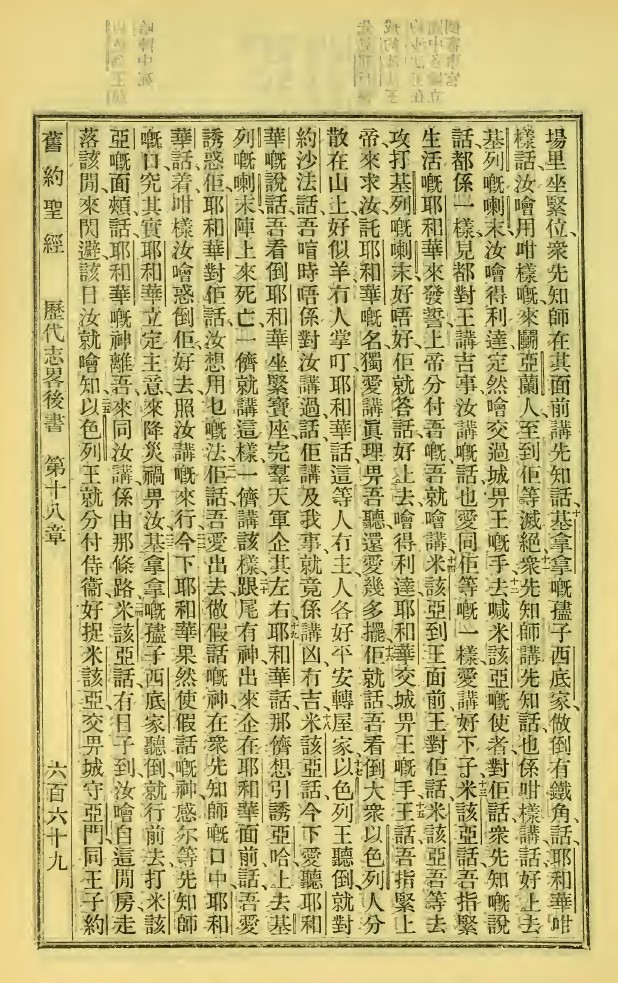 場里坐緊位衆先知師在其面前講先知話十基拿拿嘅孺子西底家做倒有鐵角話耶和華咁
樣話汝噲用咁樣嘅來鬭亞蘭人至到佢等滅絕十一衆先知師講先知話也係咁樣講話好上去
基列嘅喇末汝噲得利達定然噲交過城畀王嘅手十二去喊米該亞嘅使者對佢話衆先知嘅說
話都係一樣見都對王講吉事汝講嘅話也愛同佢等嘅一樣愛講好下子十三米該亞話吾指緊
生活嘅耶和華來發誓上帝分付吾嘅吾就噲講十四米該亞到王面前王對佢話米該亞吾等去
攻打基列嘅喇末好唔好佢就答話好上去噲得利達耶和華交城畀王嘅手十五王話吾指緊上
帝來求汝託耶和華嘅名獨愛講眞理畀吾聽還愛幾多擺十六佢就話吾看倒大衆以色列人分
散在山上好似羊冇人掌叮耶和華話這等人冇主人各好平安轉屋家十七以色列王聽倒就對
約沙法話吾喑時唔係對汝講過話佢講及我事就竟係講凶冇吉十八米該亞話今下愛聽耶和
華嘅說話吾看倒耶和華坐緊寶座完羣天軍企其左右十九耶和華話那儕想引誘亞哈上去基
列嘅喇末陣上來死亡一儕就講這樣一儕講該樣二十跟尾有神出來企在耶和華面前話吾愛
誘惑佢耶和華對佢話汝想用乜嘅法二一佢話吾愛出去做假話嘅神在衆先知師嘅口中耶和
華話着咁樣汝噲惑倒佢好去照汝講嘅來行二二今下耶和華果然使假話嘅神感尔等先知師
嘅口究其實耶和華立定主意來降災禍畀汝二三基拿拿嘅孺子西底家聽倒就行前去打米該
亞嘅面頰話耶和華嘅神離吾來同汝講係由那條路二四米該亞話有日子到汝噲自這間房走
落該間來閃避該日汝就噲知二五以色列王就分付侍衞好捉米該亞交畀城守亞門同王子約
舊約聖經 歷代志畧後書 第十八章 六百六十九